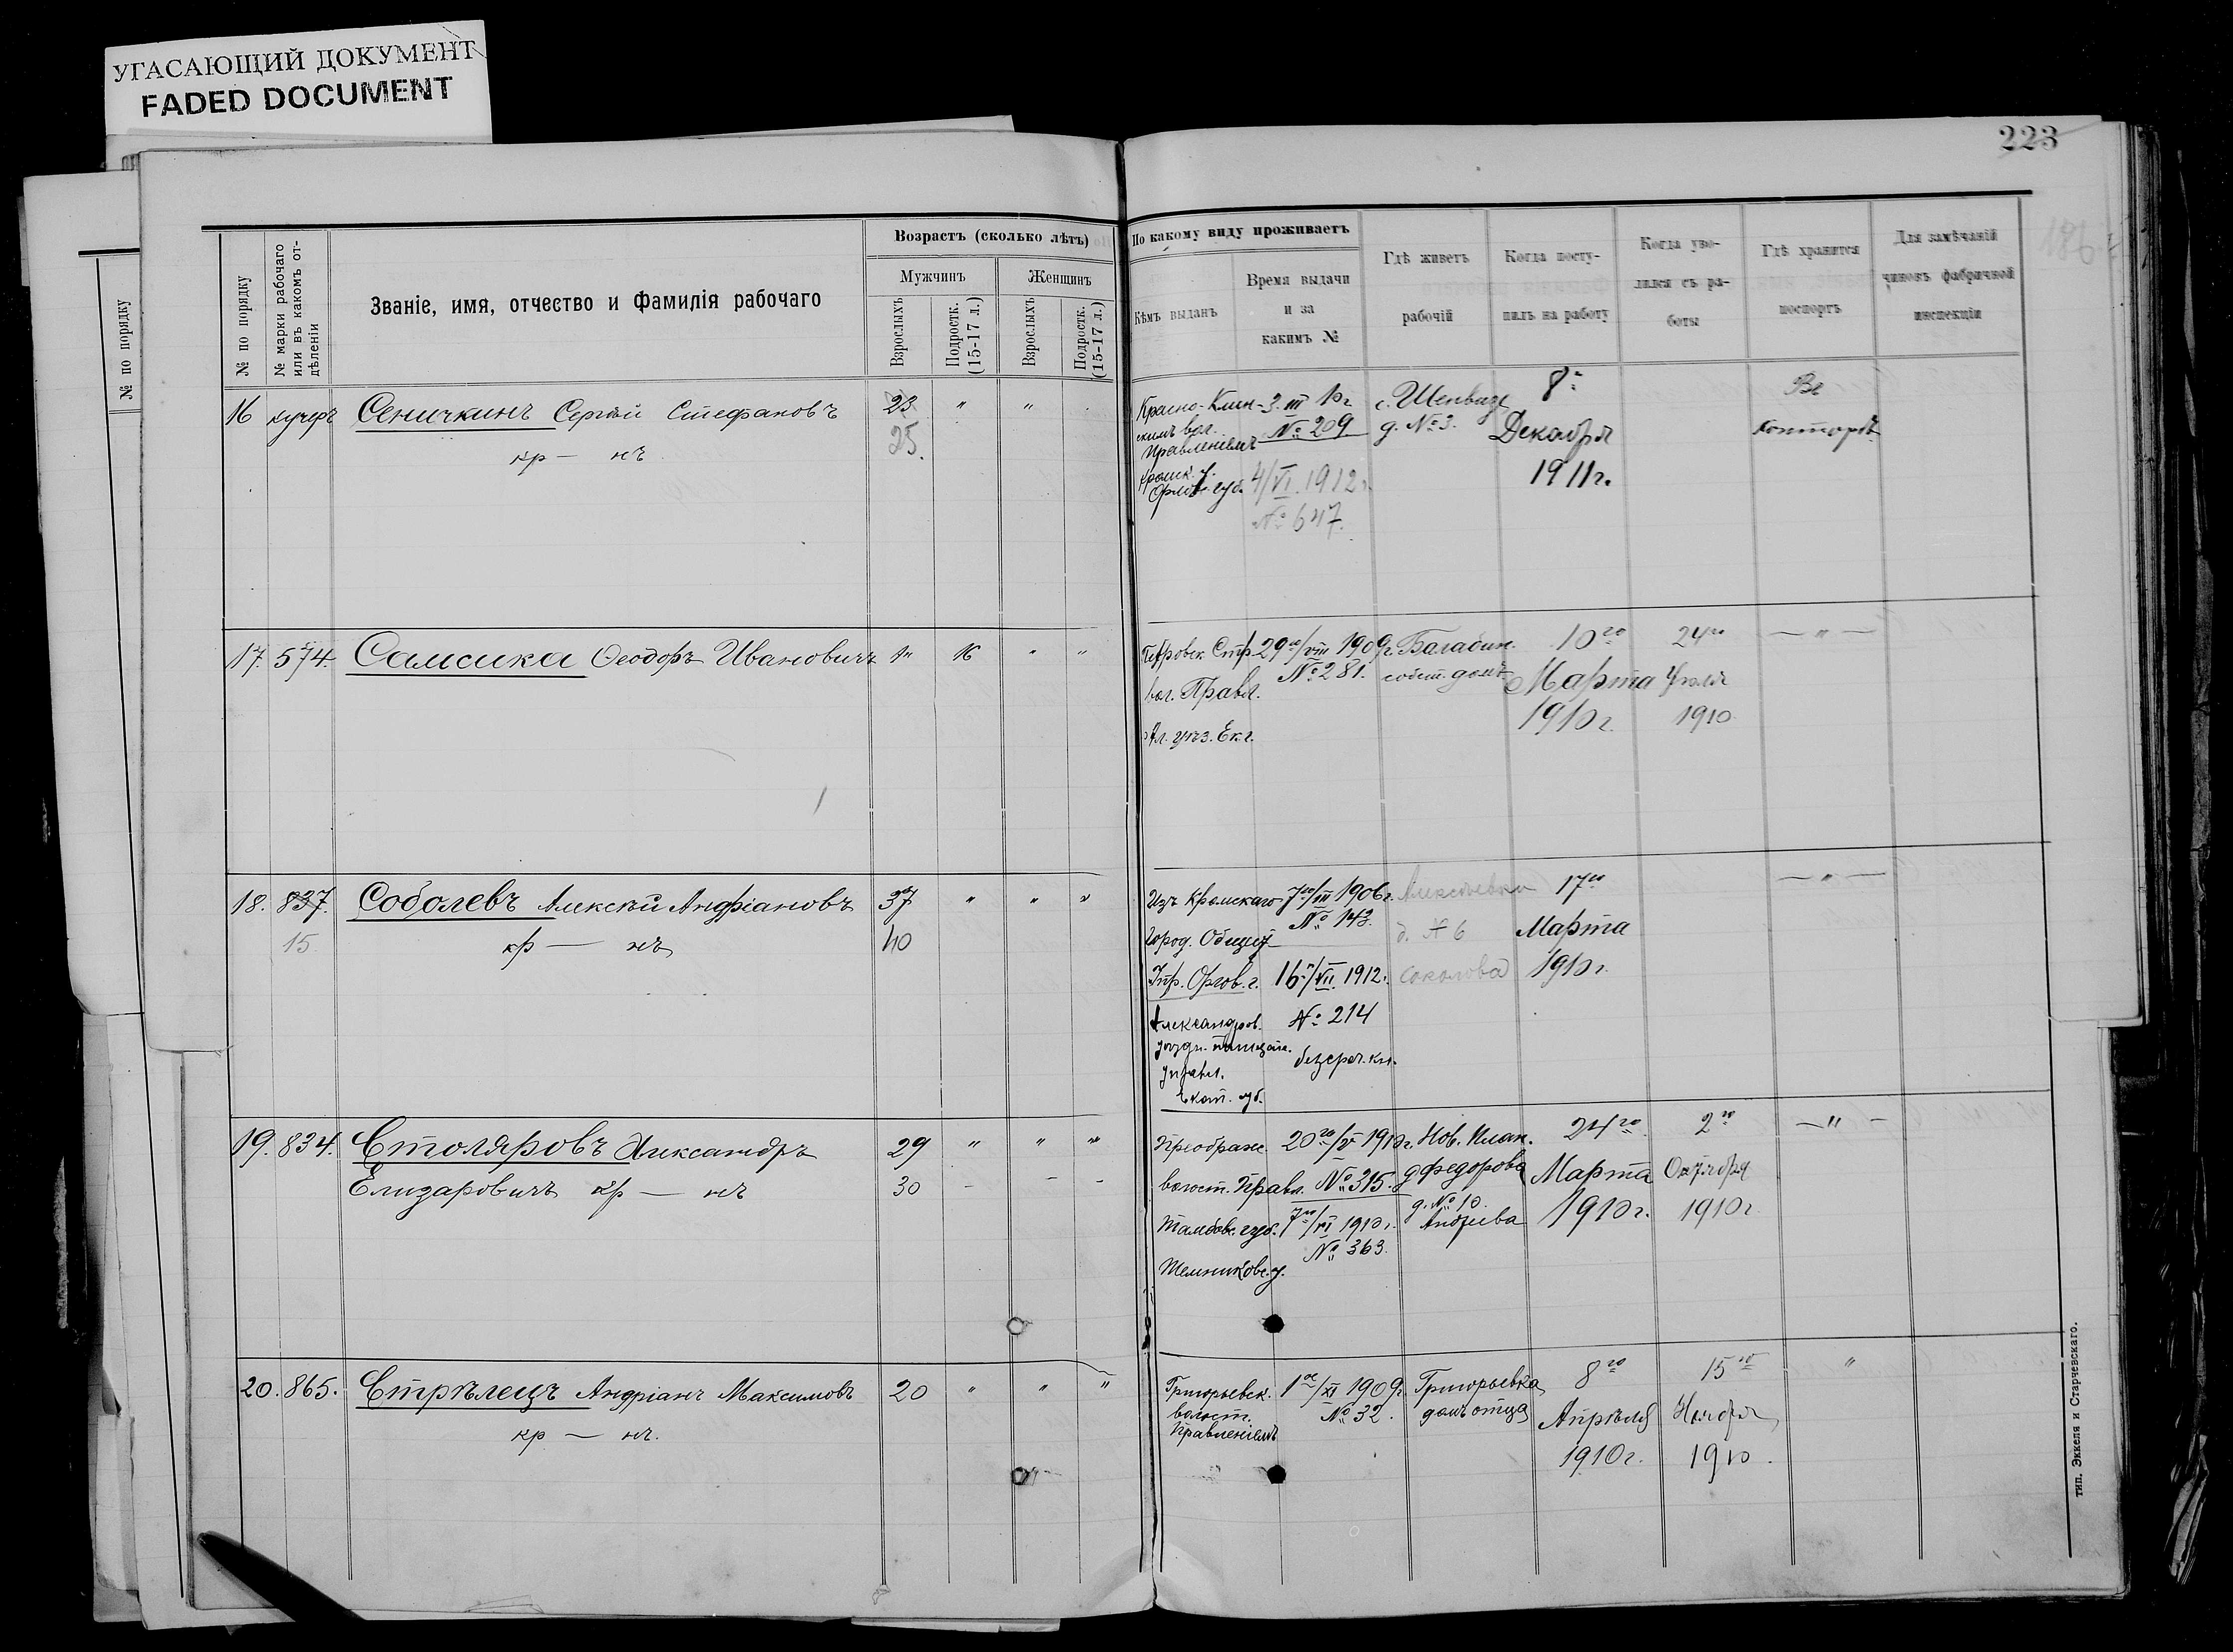 УГАСАЮЩИЙ ДОКУМЕНТ
FADED DOCUMENT
223
№ по порядку
№ по порядку
№ марки рабочаго или въ какомъ от-дѣленіи
Званіе, имя, отчество и фамилія рабочаго
Возрастъ (сколько лѣтъ)
Мужчинъ
Женщинъ
Взрослыхъ
Подростк. (15-17 л.)
Взрослыхъ
Подростк. (15-17 л.)
По какому виду проживаетъ
Кѣмъ выданъ
Время выдачи
и за
какимъ №
Гдѣ живетъ
рабочій
Когда посту-
пилъ на работу
Когда уво-
лился съ ра-
боты
Гдѣ хранится
поспортъ
Для замѣчаній
чиновъ фабричной
инспекціи
16 кучеръ Сеничкинъ Сергѣй Стефановъ 23 " "
кр — нъ 25.
Красно-Клин- 3 III 10 г. с. Шенвизе 8го Въ
скимъ вол. № 209 д. № 3. Декабря Конторѣ
Правленіемъ 1911 г.
Кромск. у.
Орлов. губ. 4/VI 1912 г.
№ 647.
17. 574 Самсика Ѳеодоръ Ивановичъ " 16 " "
Петровск. Стр. 29го/VIII 1909 г. Балабин. 10го 24го — " —
вол. Правл. № 281. собст. домъ Марта Іюля
Ал. уѣз. Ек. г. 1910 г. 1910
18. 837. Соболевъ Алексѣй Андріановъ 37 " " "
15. кр — нъ 40
Изъ Кромскаго 7го/III 1906 г. Алексѣевка 17го — " —
Город. Общ. № 143. д. № 6 Марта
Упр. Орлов. г. 16го/VII 1912 г. Соколова 1910 г.
Александров. № 214
уѣздн.
Управл. безсроч. кн.
Екат. губ.
19. 834. Столяровъ Александръ 29 " " "
Елизаровичъ кр — нъ 30 - - -
Преображ. 20го/V 1910 г. Нов. План. 24го 2го — " —
волост. Правл. № 315. д Федорова Марта Октября
Тамбов. губ. 7го/VI 1910 г. д. № 10. 1910 г. 1910 г
Темниковс. у. № 363. Андреева
20. 865. Стрѣлецъ Андріанъ Максимовъ 20 " " "
кр — нъ.
Григорьевск. 1ое/XI 1909 г. Григорьевка 8го 15го "
волост. № 32. домъ отца Апрѣля Ноября
Правленіемъ 1910 г. 1910.
тип. Эккеля и Старчевскаго.